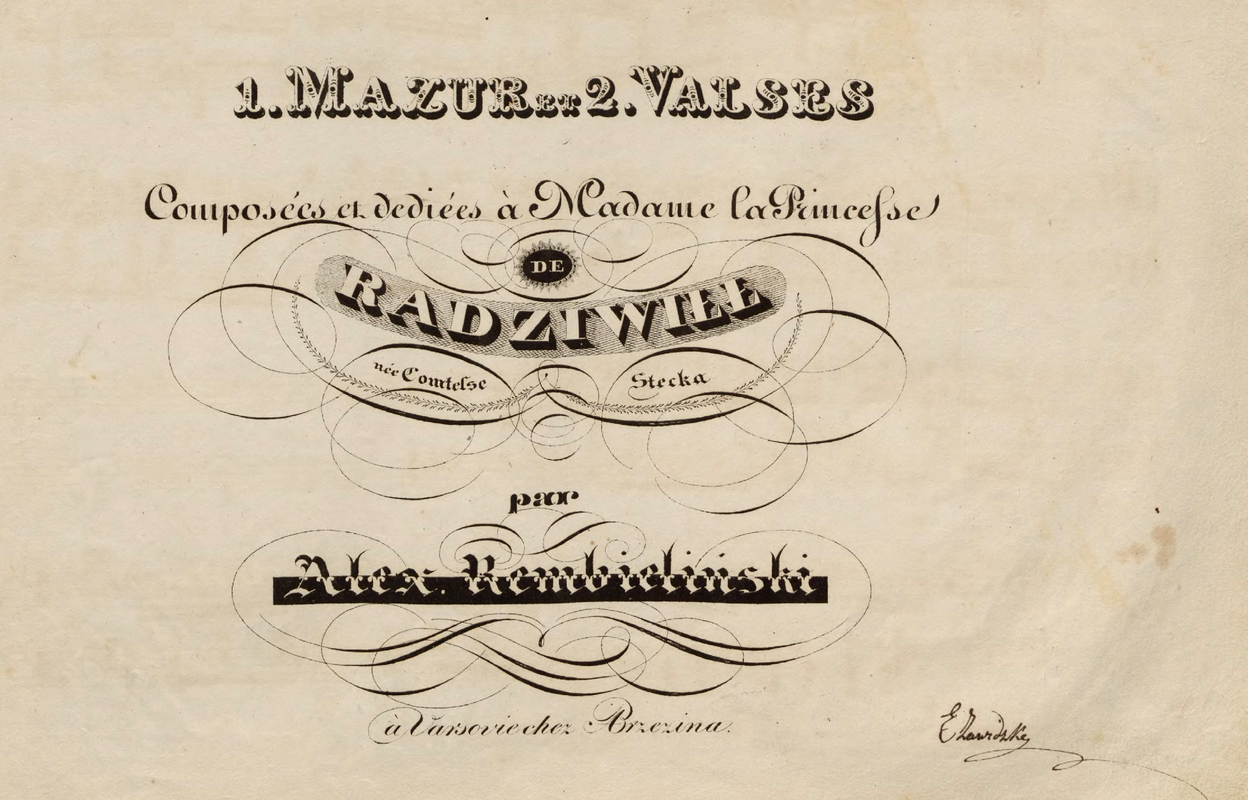 1. MAZUR ET 2. VALSES
Composées et dediées à Madame la Princesse
DE
RADZIWIŁŁ
née Comtesse Stecka
par
Alex. Rembieliński
à Varsovie chez Brzezina.